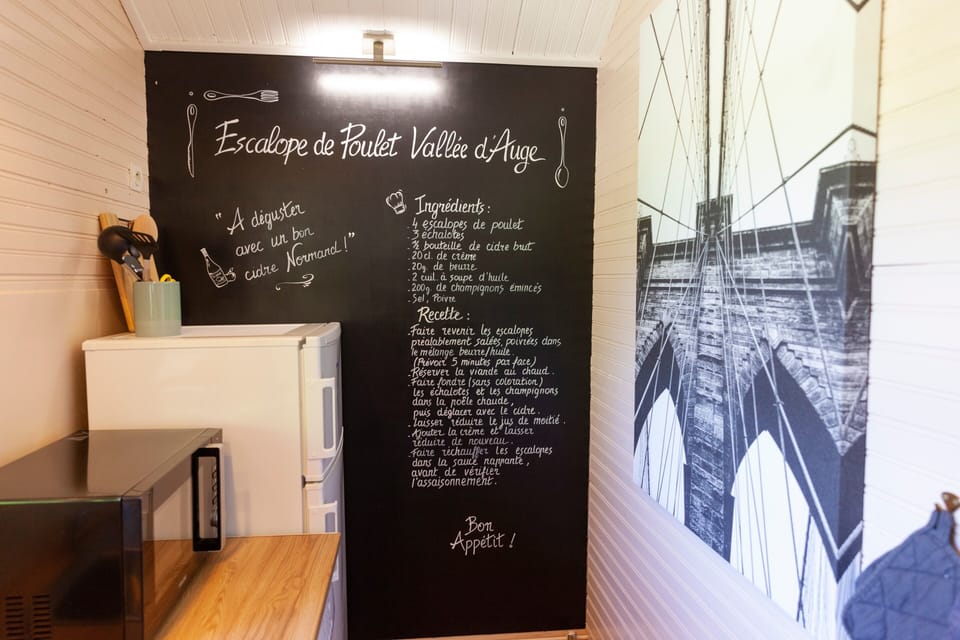 Escalope de Poulet Vallée d'Auge
"A déguster
avec un bon
cidre Normand!"
Ingrédients :
. 4 escalopes de poulet
. 3 échalotes
. bouteille de cidre brut
. 20cl. de crème
. 20g. de beurre
. 2 cuil. à soupe d'huile
. 200g. de champignons émincés
. Sel, Poivre
Recette :
. Faire revenir les escalopes
préalablement salées, poivrées dans
le mélange beurre/huile.
(Prévoir 5 minutes par face)
. Réserver la viande au chaud.
. Faire fondre (sans coloration)
les échalotes et les champignons
dans la poêle chaude,
puis déglacer avec le cidre.
. Laisser réduire le jus de moitié.
. Ajouter la crème et laisser
réduire de nouveau.
. Faire réchauffer les escalopes
dans la sauce nappante,
avant de vérifier
l'assaisonnement.
Bon
Appétit !